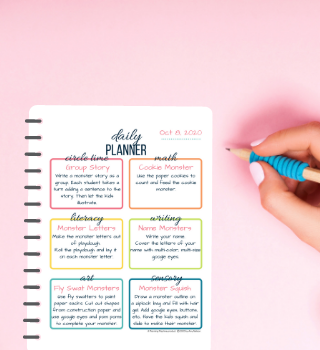 daily
Oct 13, 2020
PLANNER
circle time
Group Story
Write a monster story as a
group. Each student takes a
turn adding a sentence to the
story. Then let the kids
illustrate.
math
Cookie Monster
Use the paper cookies to
count and feed the cookie
monster.
literacy
Monster Letters
Make the monster letters out
of playdough.
Roll the playdough and lay it
on each monster letter.
writing
Name Monsters
Write your name.
Cover the letters of your
name with multi-color, multi-size
google eyes.
art
Fly Swat Monsters
Use fly swatters to paint
paper sacks. Cut out shapes
from construction paper and
use google eyes and pom poms
to complete your monster.
sensory
Monster Squish
Draw a monster outline on
a ziplock bag and fill with hair
gel. Add google eyes, buttons,
etc. Have the kids squish and
slide to make their monster.